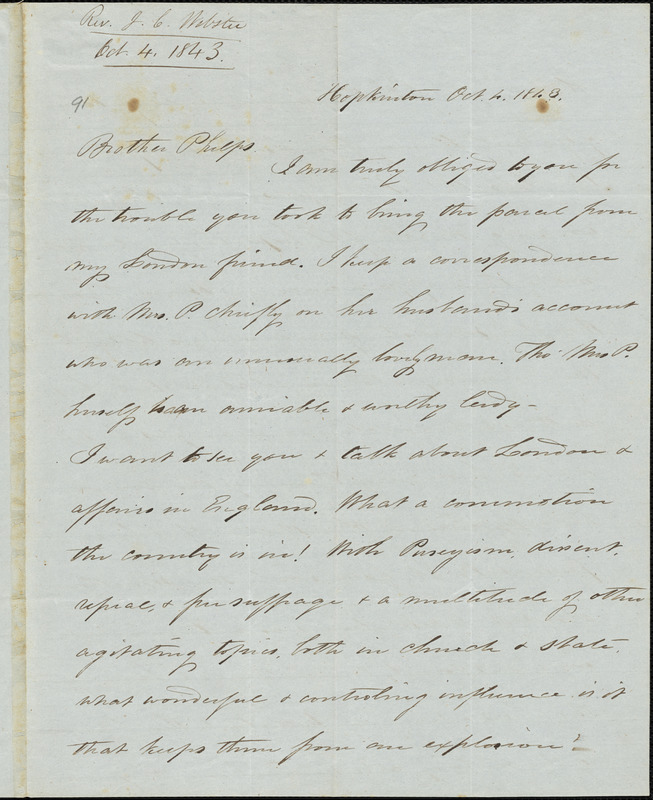 Rev. J. C. Webster
Oct. 4. 1843.
91
Hopkinton Oct. 4. 1843.
Brother Phelps
I am truly obliged to you for
the trouble you took to bring the parcel from
my London friend. I keep a correspondence
with Mrs. P. chiefly on her husband's account
who was an unusually lovely man. Tho' Mrs P.
herself is an amiable & worthy lady -
I want to see you & talk about London &
affairs in England. What a commotion
the country is in! With Puseyism, dissent,
repeal, & free suffrage & a multitude of other
agitating topics, both in church & state,
what wonderful & controling influence is it
that keeps them from an explosion?